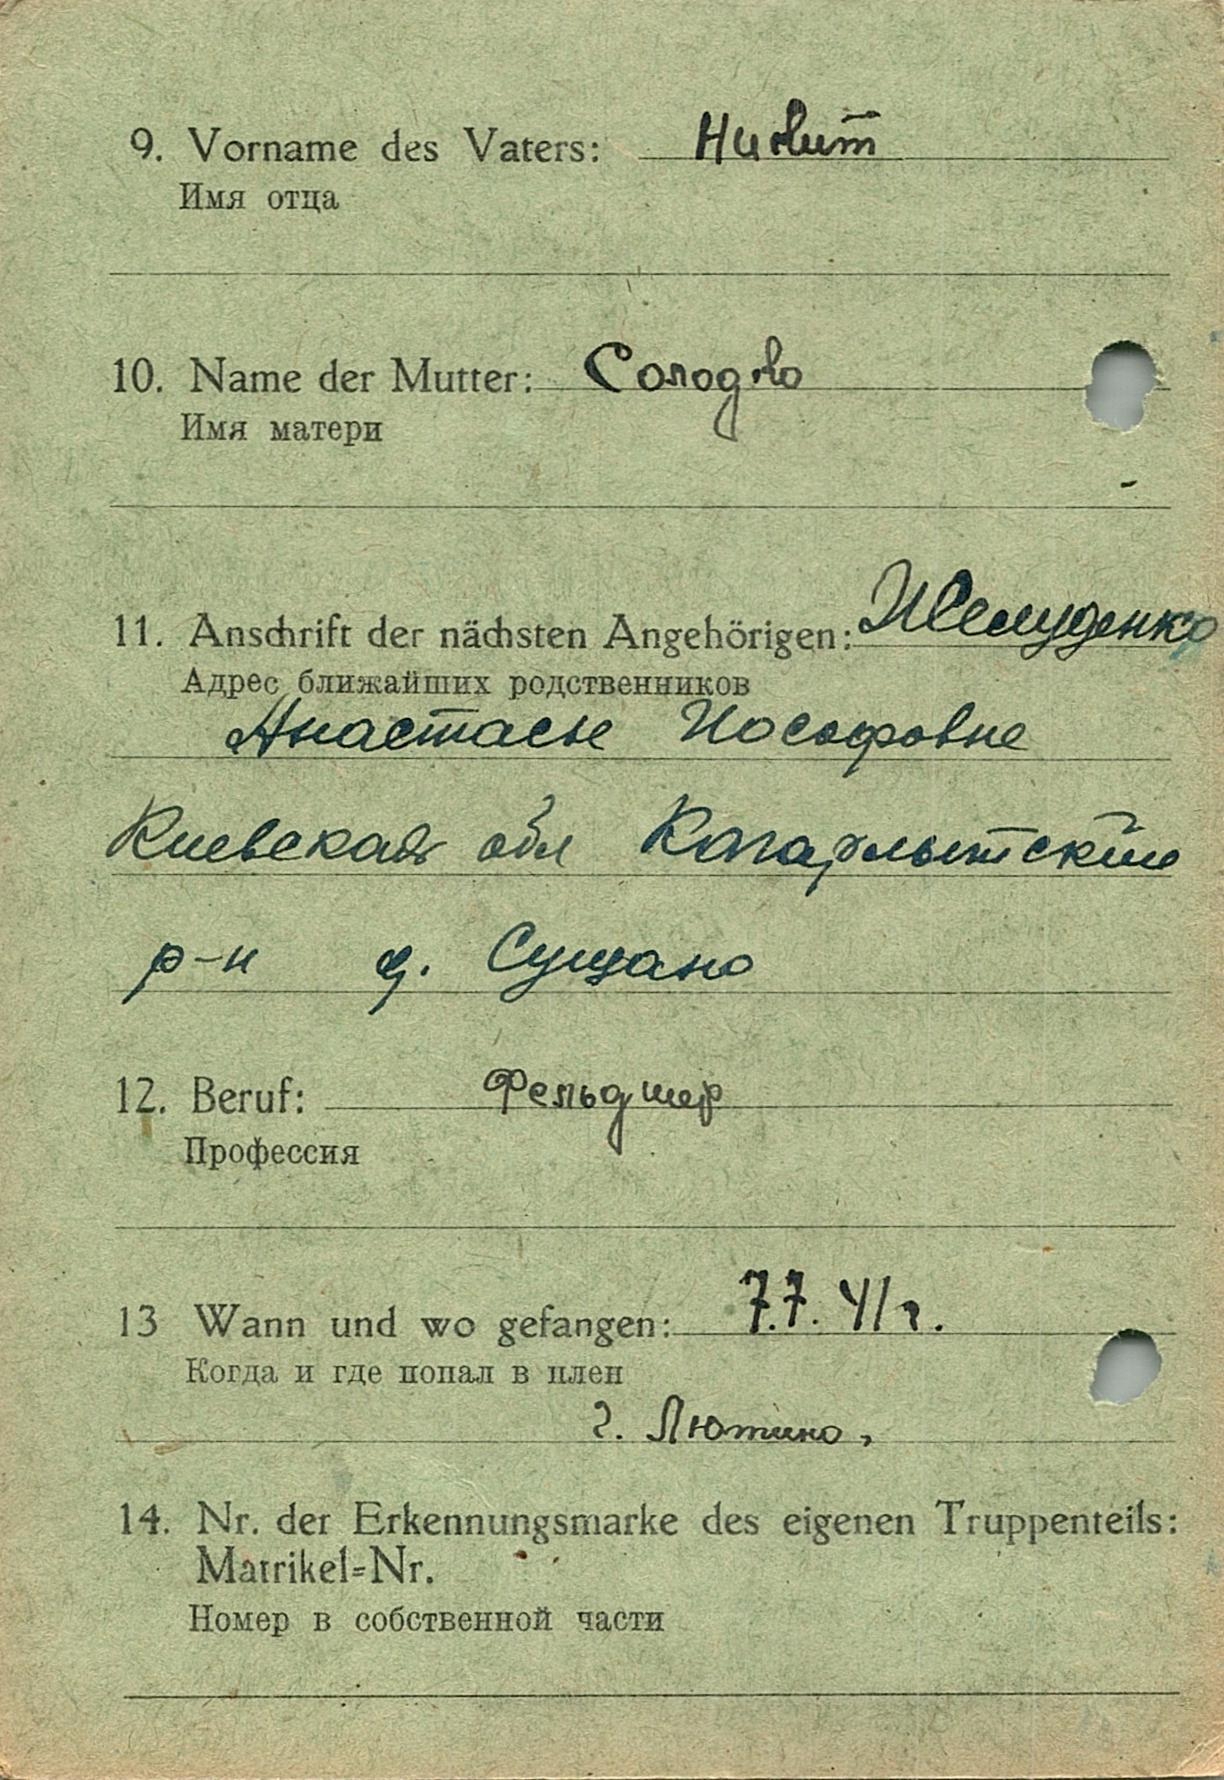 9. Vorname des Vaters: Никит
Имя отца
10. Name der Mutter: Солодко
Имя матери
11. Anschrift der nächsten Angehörigen: Шелуденко
Адрес ближайших родственников
Анастасье Иософовне
Киевская обл Кагарлытский
р-н д. Сущано
12. Beruf: Фельдшер
Профессия
13 Wann und wo gefangen: 7.7. 41 г.
Когда и где попал в плен
г. Лютино,
14. Nr. der Erkennungsmarke des eigenen Truppenteils:
Matrikel=Nr.
Номер в собственной части